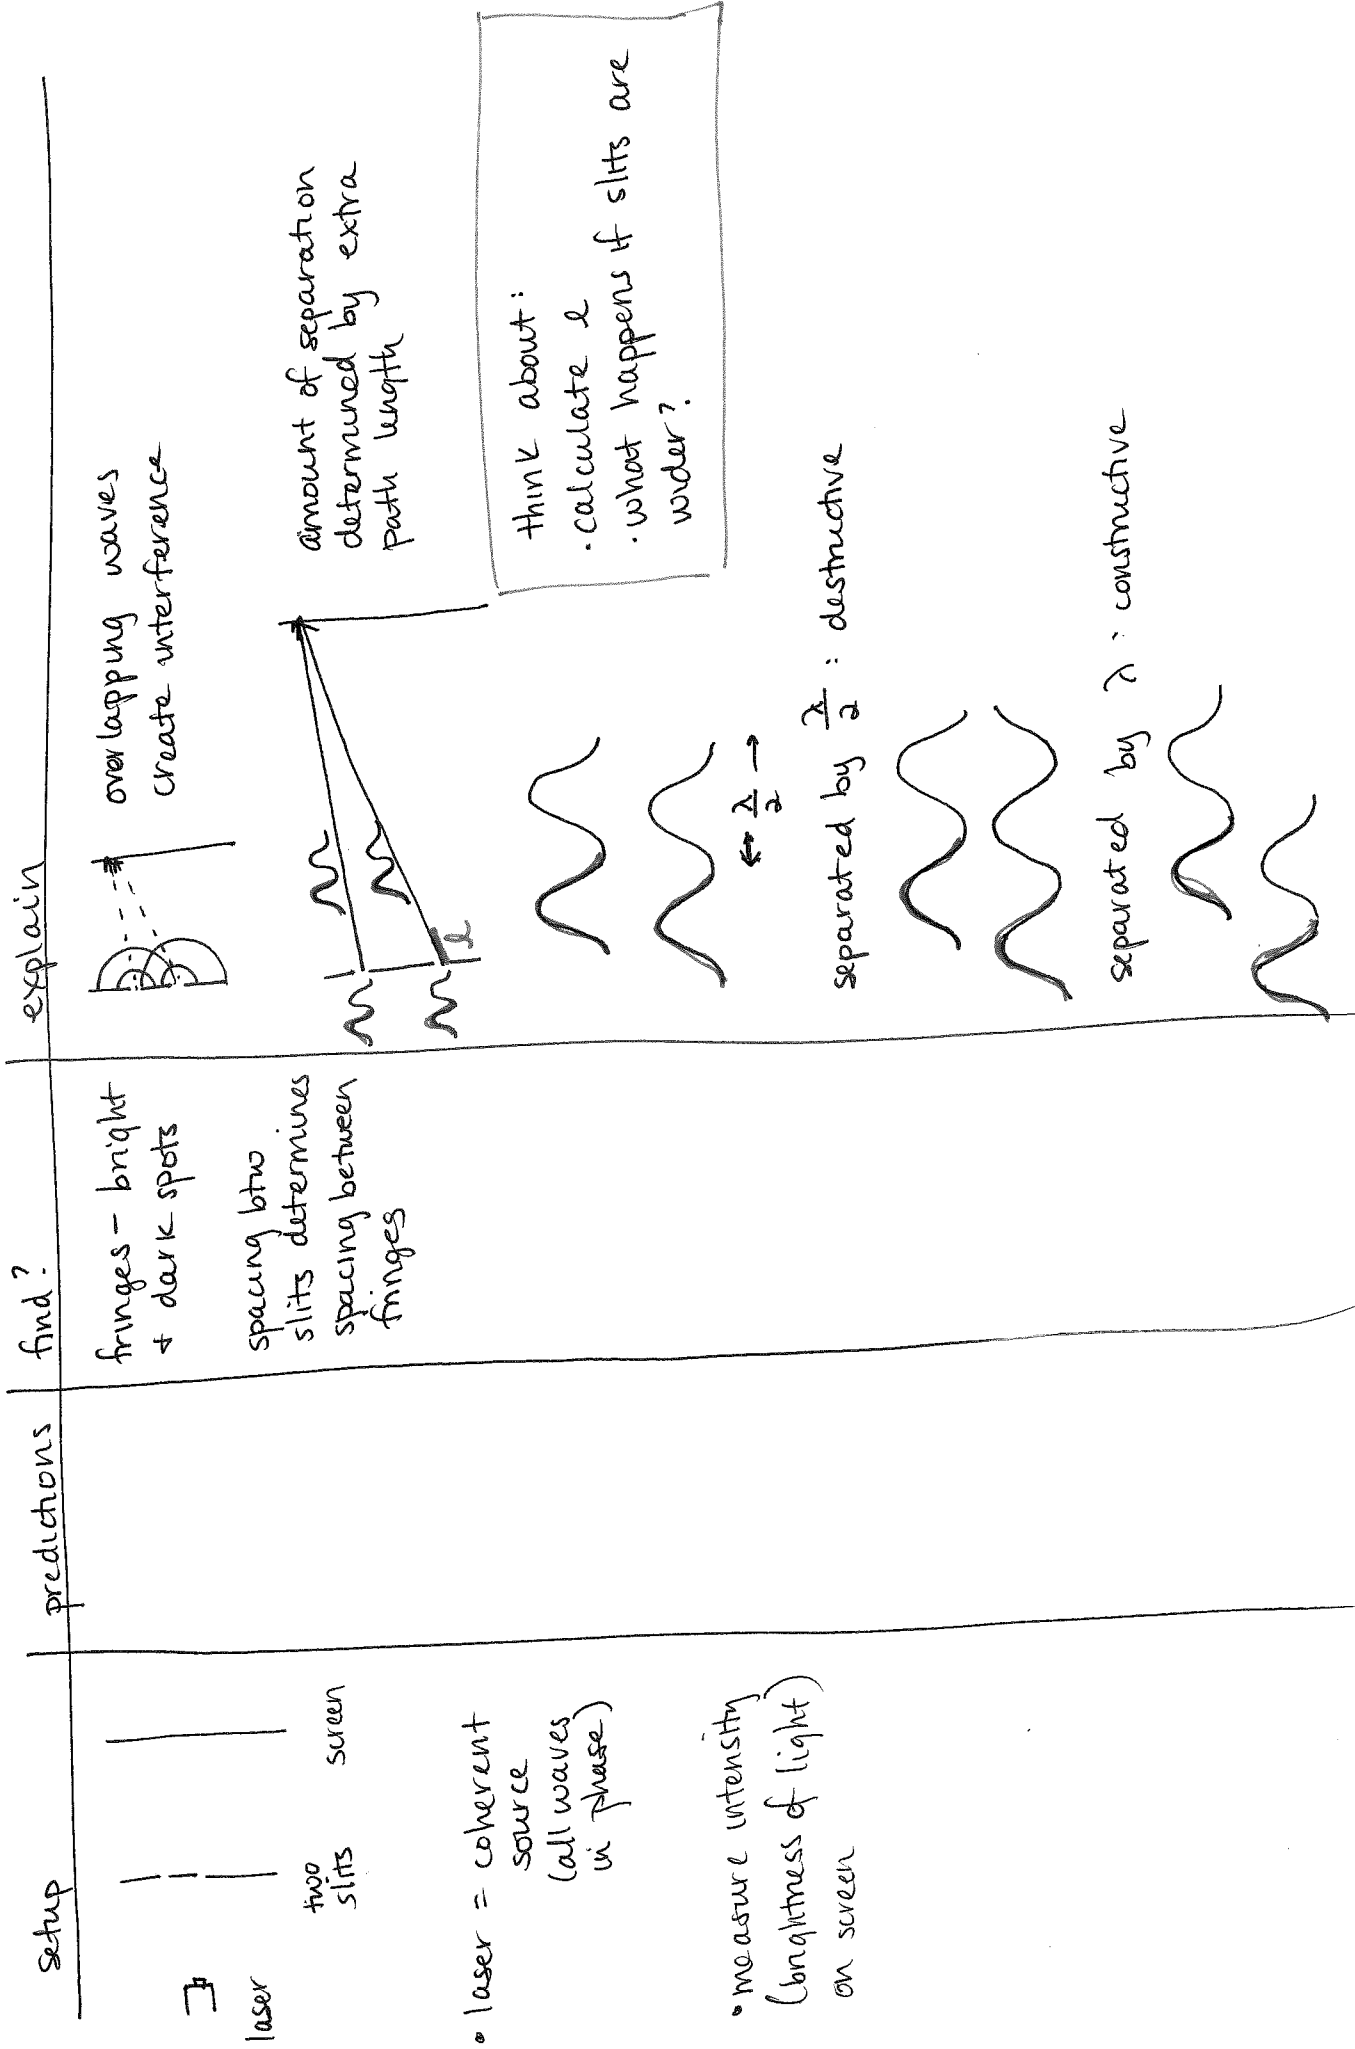 setup
predictions
find?
explain
laser
two
slits
screen
• laser = coherent
source
(all waves
in phase)
• measure intensity
(brightness of light)
on screen
fringes - bright
+ dark spots
spacing btw
slits determines
spacing between
fringes
overlapping waves
create interference
l
amount of separation
determined by extra
path length
think about:
• calculate l
• what happens if slits are
wider?
λ/2
separated by λ/2 : destructive
separated by λ : constructive